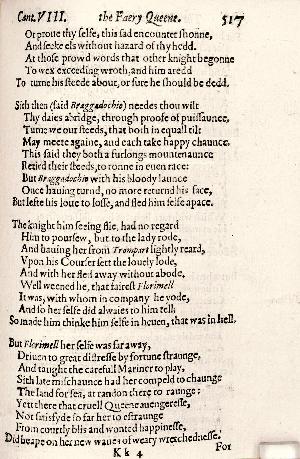 Cant. VIII. the Faery Queene. 517
Or proue thy selfe, this sad encounter shonne,
And seeke els without hazard of thy hedd.
At those prowd words that other knight begonne
To wex exceeding wroth, and him aredd
To turne his steede about, or sure he should be dedd.
Sith then (said Braggadochio) needes thou wilt
Thy daies abridge, through proofe of puissaunce,
Turne we our steeds, that both in equall tilt
May meete againe, and each take happy chaunce.
This said they both a furlongs mountenaunce
Retird their steeds, to ronne in euen race:
But Braggadochio with his bloudy launce
Once hauing turnd, no more returnd his face,
But lefte his loue to losse, and fled him selfe apace.
The knight him seeing flie, had no regard
Him to poursew, but to the lady rode,
And hauing her from Trompart lightly reard,
Vpon his Courser sett the louely lode,
And with her fled away without abode.
Well weened he, that fairest Florimell
It was, with whom in company he yode,
And so her selfe did alwaies to him tell;
So made him thinke him selfe in heuen, that was in hell.
But Florimell her selfe was far away,
Driuen to great distresse by fortune straunge,
And taught the carefull Mariner to play,
Sith late mischaunce had her compeld to chaunge
The land for sea, at randon there to raunge:
Yett there that cruell Queene auengeresse,
Not satisfyde so far her to estraunge
From courtly blis and wonted happinesse,
Did heape on her new waues of weary wretchednesse.
K k 4 For